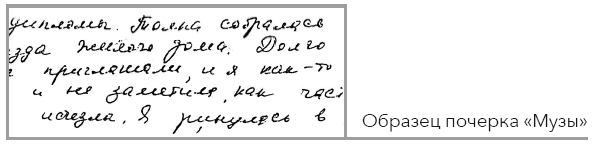 дипломы. Толпа собралась
зда жилого дома. Долго
приглашали, и я как-то
и не заметила, как час
исчезла. Я ринулась в
Образец почерка «Музы»